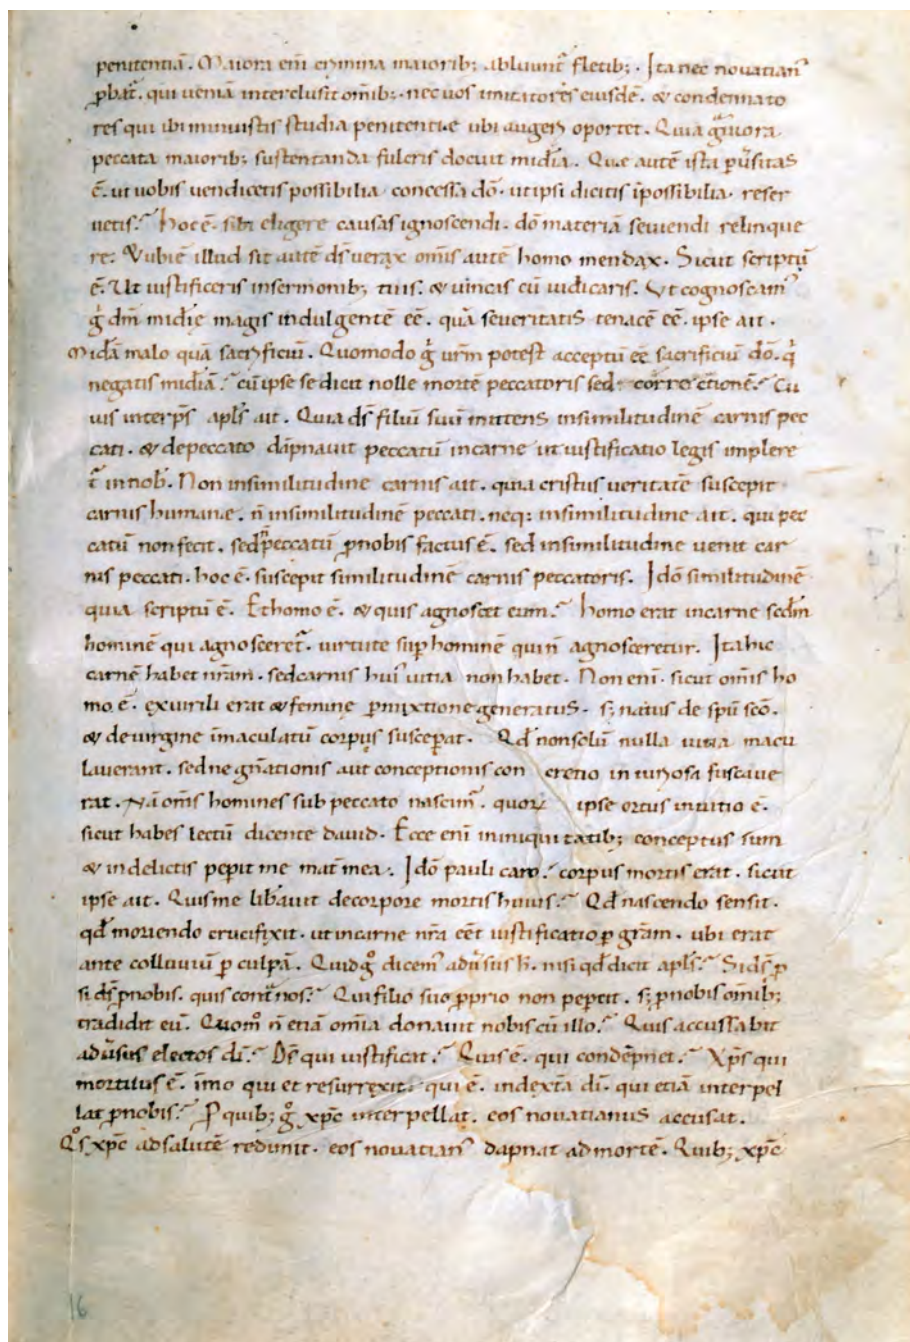 penitentiā. Maiora eni crimina maiorib; abluunt̄ fletib;. Ita nec nouatian᾽
ꝓbat̄. qui ueniā interclusit om̄ib;. nec uos imitatores eiusdē. & condennato
res qui ibi minuistis studia penitentiae ubi augeri oportet. Quia grauiora
peccata maiorib; sustentanda fulcris docuit mīdia. Quae autē ista puersitas
ē. ut uobis uendicetis possibilia concessa dō. ut ipsi dicitis īpossibilia. reser
uetis? hoc ē. sibi eligere causas ignoscendi. dō materiā seuiendi relinque
re. Vubi ē illud sit autē ds̄ uerax om̄is autē homo mendax. Sicut scriptū
ē. Ut iustificeris insermonib; tuis. & uincas cū iudicaris. Ut cognoscam᾽
g̊ dm̄ mīdie magis indulgentē eē. quā seueritatis tenacē eē. ipse ait.
Mīdā malo quā sacrificiū. Quomodo g̊ ur̄m potest acceptū eē sacrificiū dō. q̇
negatis mīdiā? cū ipse se dicit nolle mortē peccatoris sed correctionē? Cu
ius interp̄s apl̄s ait. Quia ds̄ filiū suū mittens insimilitudinē carnis pec
cati. & depeccato dāpnauit peccatū incarne ut iustificatio legis implere
t̄ innob̄. Non insimilitudine carnis ait. quia cristus ueritatē suscepit
carnis humanae. n̄ insimilitudinē peccati. neq; insimilitudine ait. qui pec
catū non fecit. sed peccatū ꝓnobis factus ē. sed insimilitudine uenit car
nis peccati. hoc ē. suscepit similitudinē carnis peccatoris. Idō similitudinē
quia scriptū ē. Ethomo ē. & quis agnoscet eum? homo erat incarne scdm̄
hominē qui agnosceret̄. uirtute sup̱ hominē qui n̄ agnosceretur. Ita hic
carnē habet nr̄am. sedcarnis hui᾽ uitia non habet. Non enī sicut om̄is ho
mo ē. exuirili erat & femine ꝑmixtione generatus. s; natus de sp̄u sc̄o.
& deuirgine īmaculatū corpus suscep̱at. Qd̄ nonsolū nulla uitia macu
lauerant. sed ne gn̄ationis aut conceptionis con cretio iniuriosa fuscaue
rat. Nā om̄s homines sub peccato nascim᾽. quorꝝ ipse ortus inuitio ē.
sicut habes lectū dicente dauid. Ecce enī ininiquitatib; conceptus sum
& indelictis pep̱it me mat̄ mea. Idō pauli caro? corpus mortis erat. sicut
ipse ait. Quis me lib̄auit decorpore mortis huius? Qd̄ nascendo sensit.
qd̄ moriendo crucifixit. ut incarne nr̄a eēt iustificatio ꝑ gr̄am. ubi erat
ante colluuiū ꝑ culpā. Quid g̊ dicem᾽ adūsus h̄. nisi qd̄ dicit apl̄s? Si ds̄ ꝓ
si ds̄ ꝓnobis. quis cont̄ nos? Qui filio suo ꝓprio non pep̱cit. s; ꝓnobis om̄ib;
tradidit eū. Quom̊ n̄ etiā om̄ia donauit nobis cū illo? Quis accussabit
adūsus electos dī? Ds̄ qui iustificat? Quis ē. qui condēpnet? Xp̄s qui
mortuus ē. īmo qui et resurrexit. qui ē. indexta dī. qui etiā interpel
lat ꝓnobis? P quib; g̊ xp̄c interpellat. eos nouatianus accusat.
Q̊s xp̄c adsalutē redimit. eos nouatian᾽ dapnat admortē. Quib; xp̄c
16